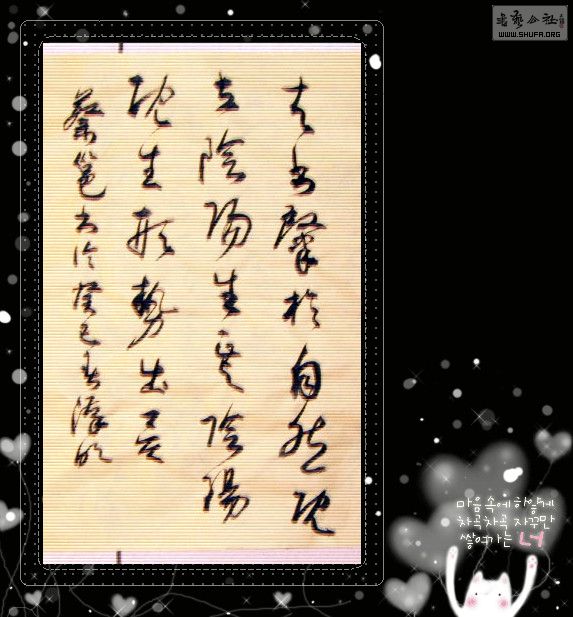 夫書肇於自然既
立陰陽生焉陰陽
既生形勢出矣
蔡邕書論癸巳春
書藝公社
WWW.SHUFA.ORG
마음속에 하얗게
차곡차곡 자꾸만
쌓여가는 너